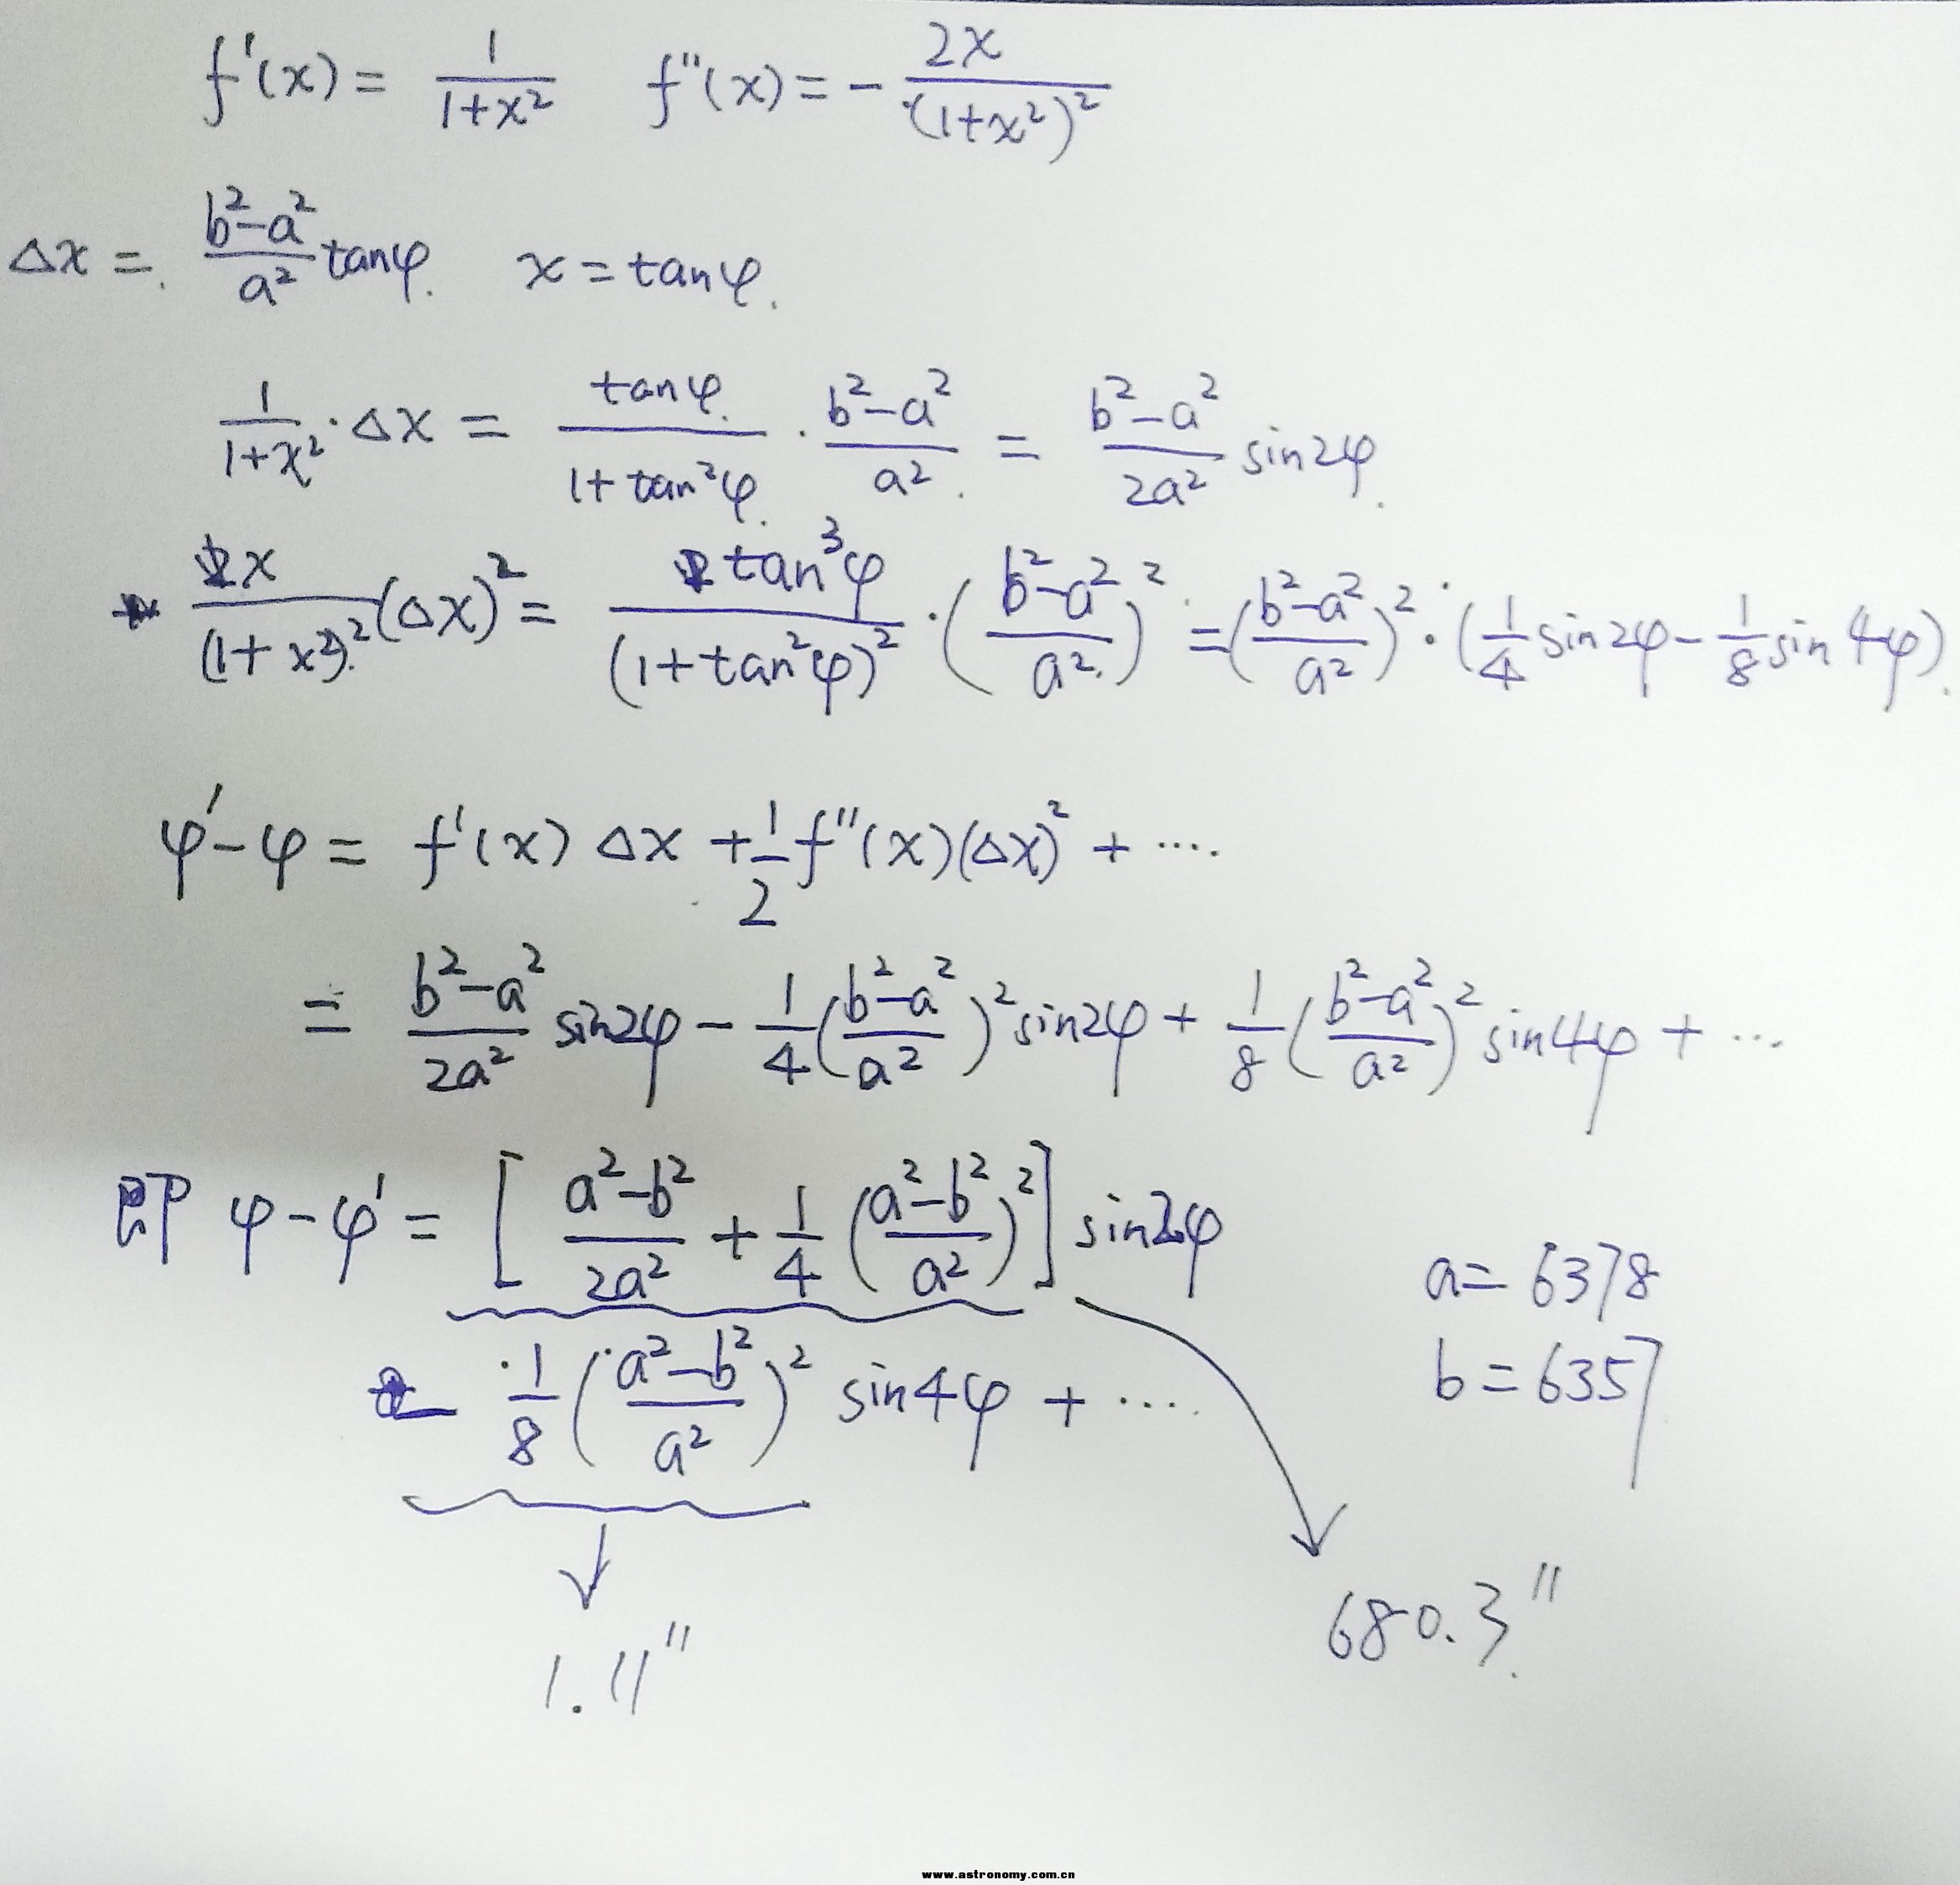 f'(x) = 1/(1+x²)   f''(x) = - 2x/(1+x²)²
Δx = (b²-a²)/a² tanφ.   x = tanφ.
1/(1+x²) · Δx = tanφ/(1+tan²φ) · (b²-a²)/a² = (b²-a²)/2a² sin2φ.
x/(1+x²)² (Δx)² = tan³φ/(1+tan²φ)² · ((b²-a²)/a²)² = ((b²-a²)/a²)² · (1/4 sin2φ - 1/8 sin4φ).
φ'-φ = f'(x) Δx + 1/2 f''(x)(Δx)² + ····
= (b²-a²)/2a² sin2φ - 1/4((b²-a²)/a²)² sin2φ + 1/8((b²-a²)/a²)² sin4φ + ···
即 φ-φ' = [(a²-b²)/2a² + 1/4((a²-b²)/a²)²] sin2φ
- 1/8((a²-b²)/a²)² sin4φ + ····
a = 6378
b = 6357
680.3"
1.11"
www.astronomy.com.cn